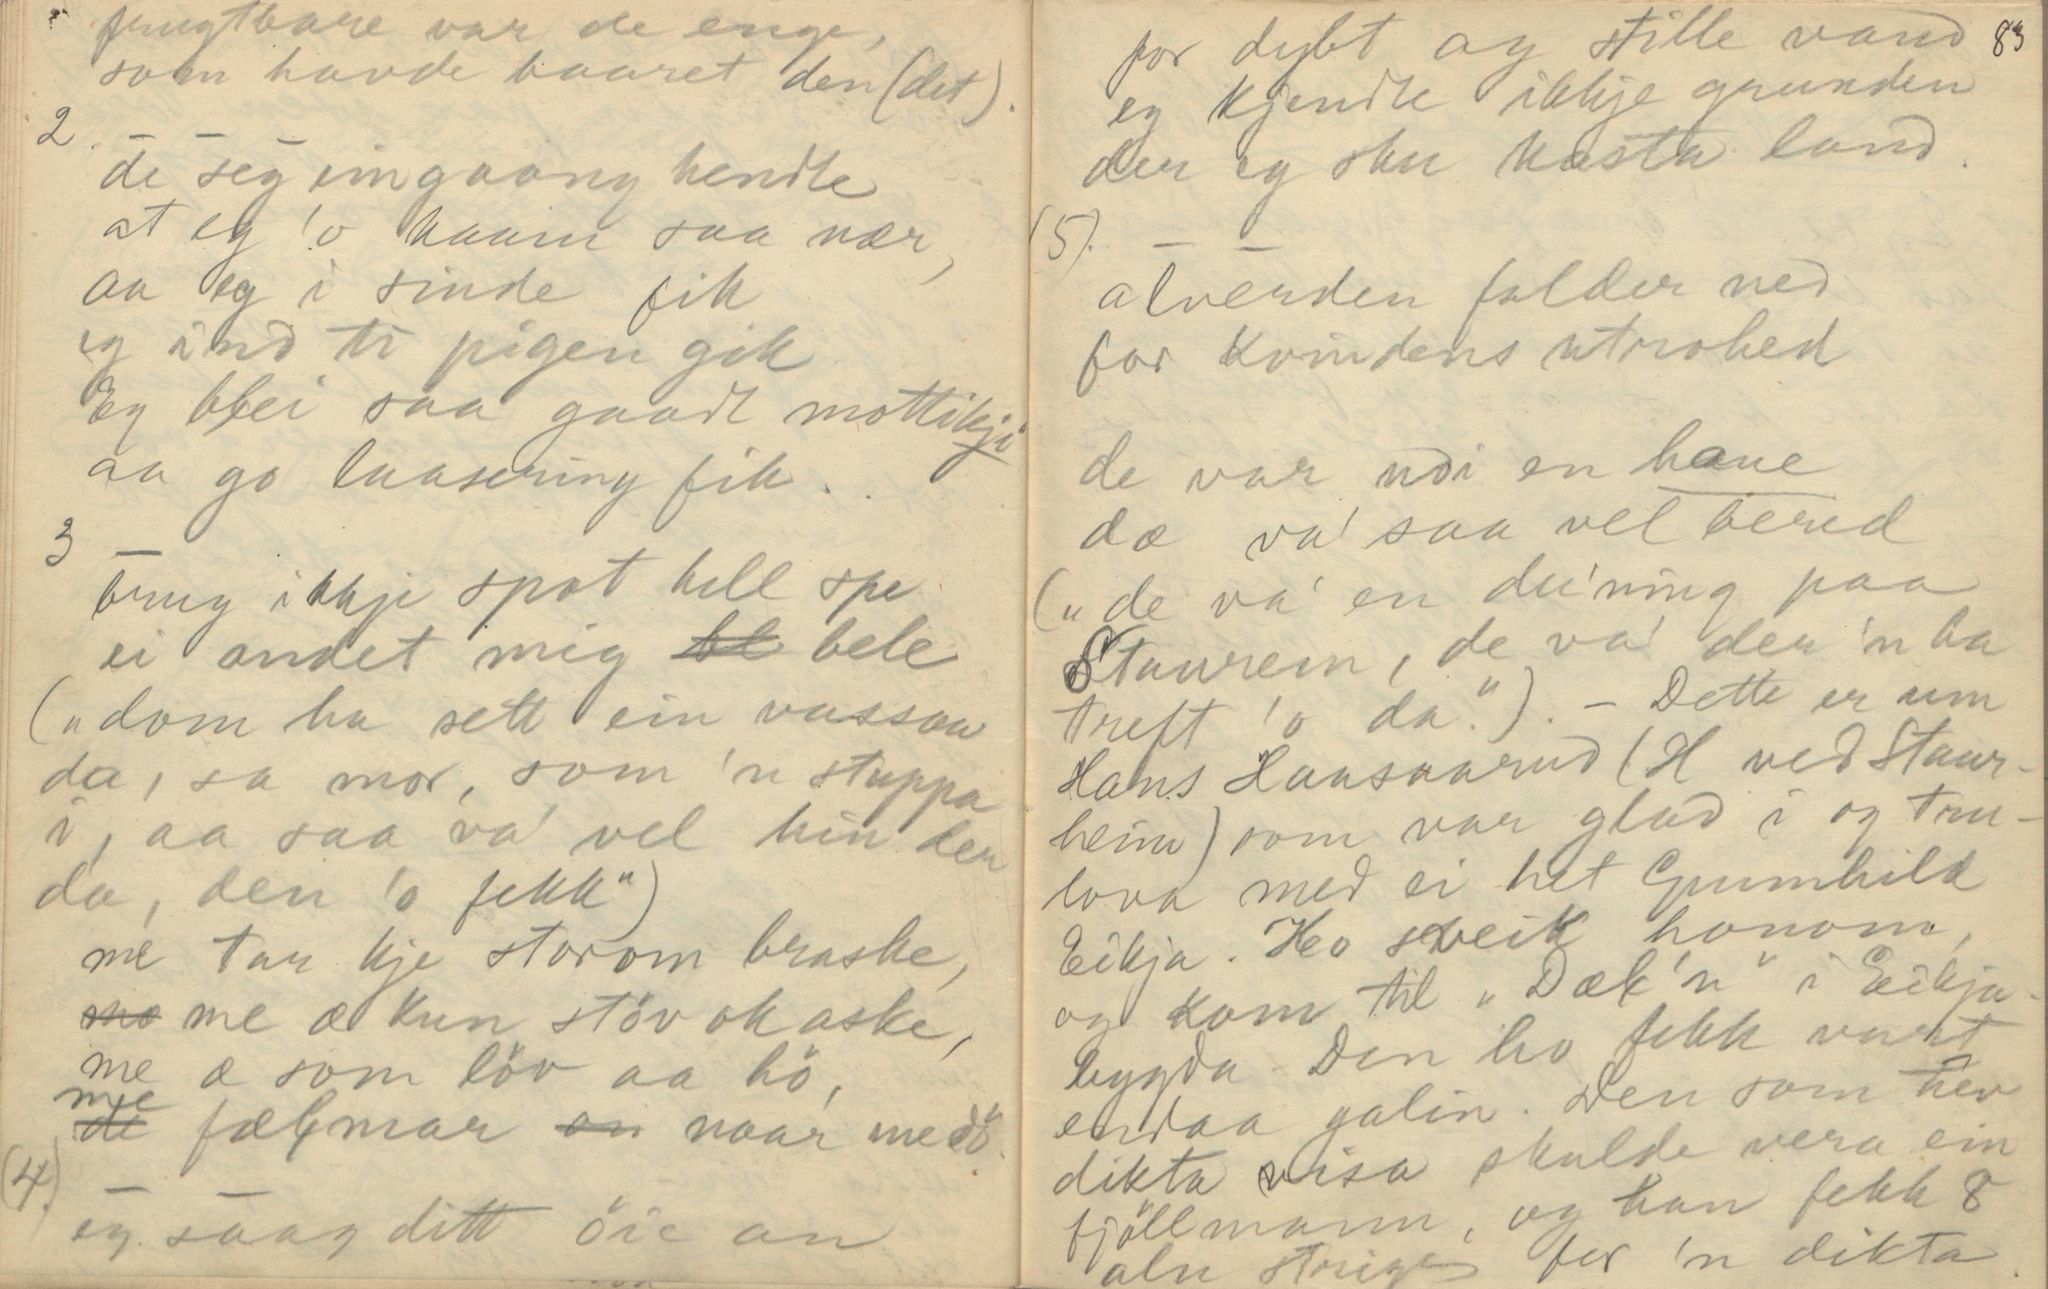 frugtbare var de enge,
som havde baaret den (det).
2. – – –
de seg eingaang hendte
at eg 'o kaam saa nær,
aa eg i sinde fik
eg ind ti pigen gik
Eg blei saa gaadt mottikji'
aa go laasering fik. .
3 –
brug ikkje spot hell spe
ei andet mig bele
(„dom ha sett ein vassaa
da, sa mor, som 'n stuppa
i, aa saa va' vel hin der
da, den 'o fekk")
me tar kje storom braske,
me æ kun stöv ok aske,
me æ som löv aa hö,
me fælgmar naar me dö.
(4). – –
eg saag ditt öie an
83
for dybt og stille vand
eg kjendte ikkje grunden
der eg sku kasta land.
(5). – –
alverden falder ned
for kvindens utrohed
de var udi en have
dæ va' saa vel bered
(„de va' en du'ning paa
Staurem, de va' der 'n ha
treft 'o da."). – Dette er um
Hans Haasaarud (H ved Staur-
heim) som var glad i og tru-
lova med ei het Gunnhild
Eikja. Ho sveik honom,
og kom til „Dæk'n" i Eikja-
bygda. Den ho fekk vart
endaa galin. Den som hev
dikta visa skulde vera ein
fjöllmann, og han fekk 8
aln strige for 'n dikta.